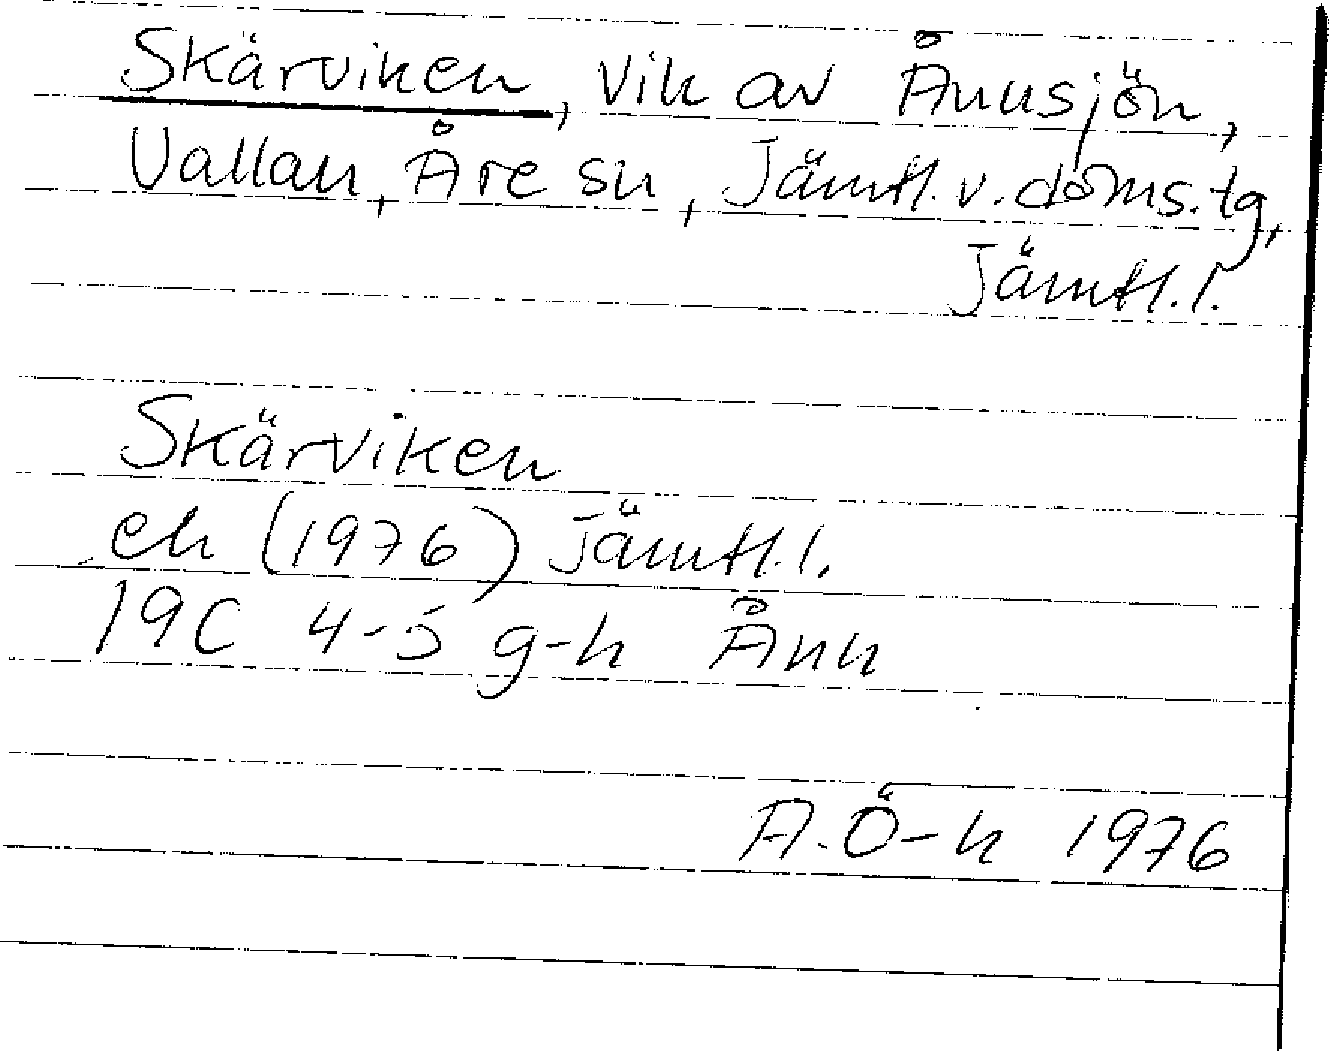 Skärviken, vik av Ånnsjön,
Vallan, Åre sn, Jämtl. v. doms. tg,
Jämtl. l.
Skärviken
ek (1976) Jämtl. l.
19C 4-5 g-h Ånn
A. Ö-k 1976